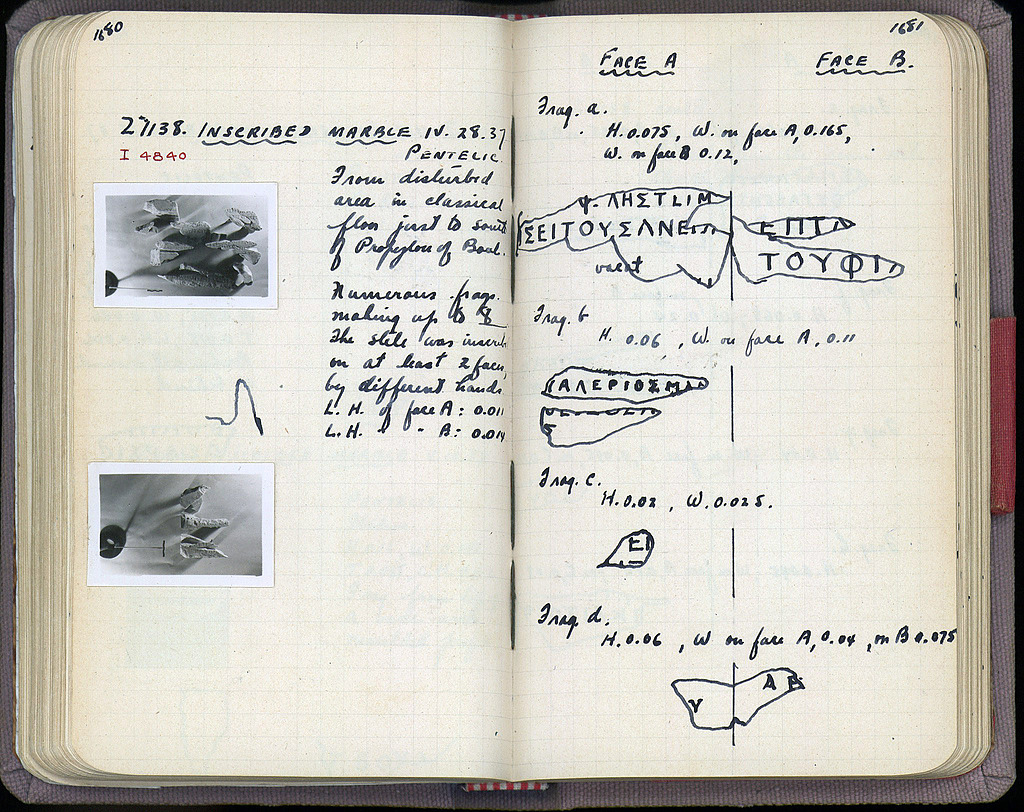 1680
27/138. INSCRIBED MARBLE IV. 28.37
I 4840
PENTELIC.
From disturbed
area in classical
floor just to south
of Propylon of Boul.
Numerous frags.
making up to 8
The stele was inscrib
on at least 2 faces,
by different hands.
L. H. of face A: 0.011
L.H. " " B: 0.014
1681
FACE A FACE B.
Frag. a.
H. 0.075, W. on face A, 0.165,
W. on face B 0.12,
ΛΗΣΤ
ΣΕΙΤΟΥΣΑΝΕ ΕΠΤ
vacat ΤΟΥΦΙ
Frag. b
H. 0.06, W. on face A, 0.11
ΑΛΕΡΙΟΣΜ
Frag. c.
H. 0.02, W. 0.025.
ΕΙ
Frag. d.
H. 0.06, W on face A, 0.04, on B 0.075
Υ Α